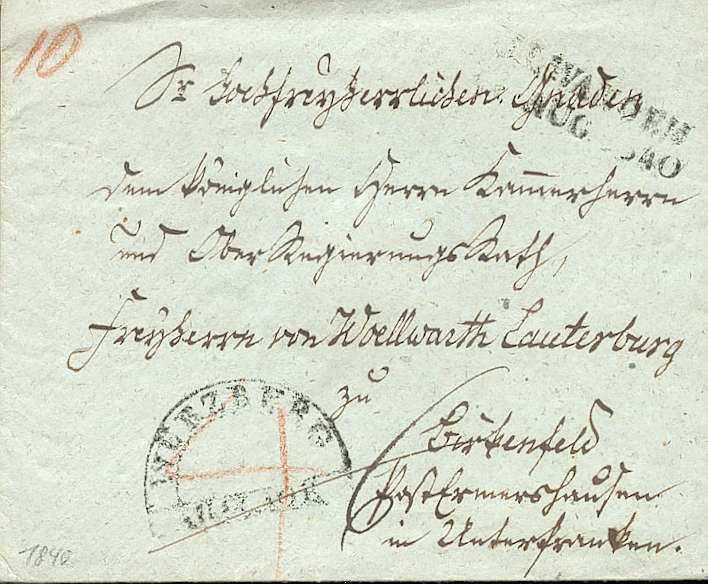 10
Sr Hochfreyherrlichen Gnaden
AUG 1840
dem Königlichen Herrn Kammerherrn
und Ober Regierungs Rath,
Freyherrn von Woellwarth Lauterburg
zu
WÜRZBURG
Birkenfeld
Post Ermershausen
in Unterfranken.
1840